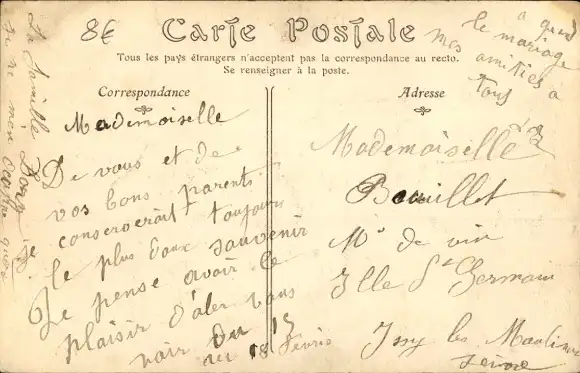 8€
Carte Postale
Tous les pays étrangers n'acceptent pas la correspondance au recto.
Se renseigner à la poste.
à quad
le mariage
mes amitiés à
tous
Correspondance
Mademoiselle
De vous et de
vos bons parents
je conserverait toujours
le plus doux souvenir
Je pense avoir le
plaisir d'aler vous
voir du 15
au 18 Février
La famille
Adresse
Mademoiselle
Bouillet
Md de vin
Ille St Germain
Issy les Moulineaux
Seine